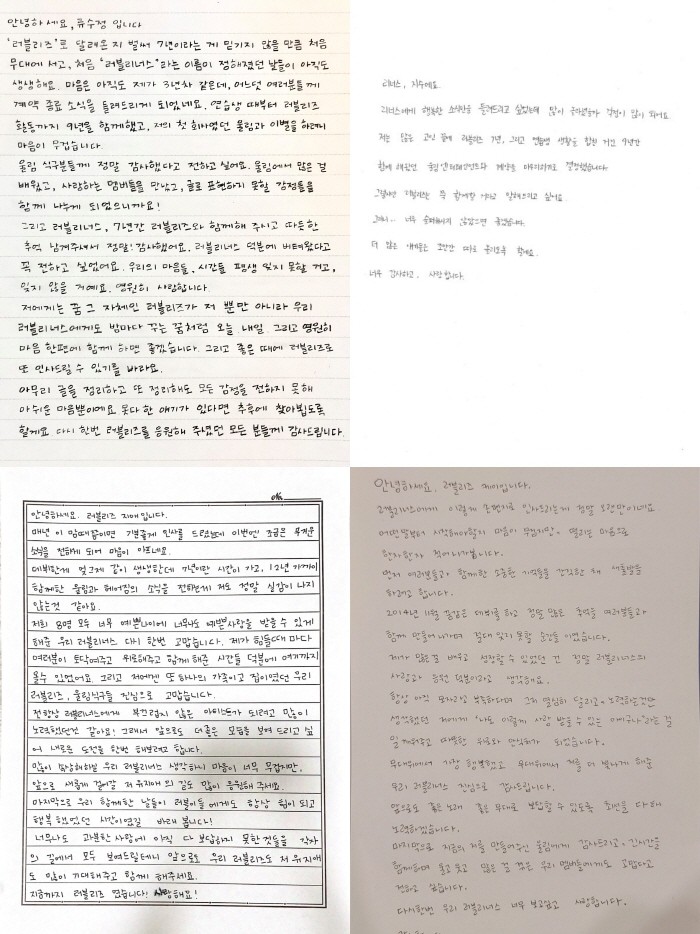 안녕하세요, 류수정 입니다
'러블리즈'로 달려온 지 벌써 7년이라는 게 믿기지 않을 만큼 처음
무대에 서고, 처음 '러블리너스'라는 이름이 정해졌던 날들이 아직도
생생해요. 마음은 아직도 제가 3년차 같은데, 어느덧 여러분들께
계약 종료 소식을 들려드리게 되었네요. 연습생 때부터 러블리즈
활동까지 9년을 함께했고, 저의 첫 회사였던 울림과 이별을 하려니
마음이 무겁습니다.
울림 식구분들께 정말 감사했다고 전하고 싶어요. 울림에서 많은 걸
배웠고, 사랑하는 멤버들을 만났고, 글로 표현하지 못할 감정들을
함께 나누게 되었으니까요!
그리고 러블리너스, 7년간 러블리즈와 함께해 주시고 따듯한
추억 남겨주셔서 정말! 감사했어요. 러블리너스 덕분에 버텨왔다고
꼭 전하고 싶었어요. 우리의 마음들, 시간들 평생 잊지 못할 거고,
잊지 않을 거예요. 영원히 사랑합니다.
저에게는 꿈 그 자체인 러블리즈가 저 뿐만 아니라 우리
러블리너스에게도 밤마다 꾸는 꿈처럼 오늘. 내일. 그리고 영원히
마음 한편에 함께 하면 좋겠습니다. 그리고 좋은 때에 러블리즈로
또 인사드릴 수 있기를 바라요.
아무리 글을 정리하고 또 정리해도 모든 감정을 전하지 못해
아쉬운 마음뿐이에요 못다 한 얘기가 있다면 추후에 찾아뵙도록
할게요. 다시 한번 러블리즈를 응원해 주셨던 모든 분들께 감사드립니다.
리너스, 지수예요.
리너스에게 행복한 소식만을 들려드리고 싶었는데 많이 놀라셨을까 걱정이 많이 되어요.
저는 많은 고민 끝에 러블리즈 7년, 그리고 연습생 생활을 합친 거진 9년간
함께 해왔던 울림엔터테인먼트와 계약을 마무리하기로 결정했습니다.
그렇지만 러블리즈는 쭉 함께할 거라고 말해드리고 싶어요
그러니.. 너무 슬퍼하시지 않았으면 좋겠습니다.
더 많은 얘기들은 조만간 따로 올리도록 할게요.
너무 감사하고, 사랑합니다.
안녕하세요. 러블리즈 지애입니다.
매년 이 맘때쯤이면 기분좋게 인사를 드렸는데 이번엔 조금은 무거운
소식을 전하게 되어 마음이 아프네요.
데뷔한게 엊그제 같이 생생한데 7년이란 시간이 가고, 12년 가까이
함께한 울림과 헤어짐의 소식을 전하려니 저도 정말 실감이 나지
않는것 같아요.
저희 8명 모두 너무 예쁜나이에 너무나도 예쁜사랑을 받을 수 있게
해준 우리 러블리너스 다시 한번 고맙습니다. 제가 힘들때 마다
여러분이 토닥여주고 위로해주고 함께 해준 시간들 덕분에 여기까지
올 수 있었어요. 그리고 저에겐 또 하나의 가족이고 집이였던 우리
러블리즈, 울림식구들 진심으로 고맙습니다.
전 항상 러블리너스에게 부끄럽지 않은 아티스트가 되려고 많이
노력했던것 같아요! 그래서 앞으로도 더 좋은 모습을 보여 드리고 싶
어 새로운 도전을 한번 해보려고 합니다.
많이 속상해하실 우리 러블리너스 생각하니 마음이 너무 무겁지만,
앞으로 새롭게 걸어갈 저 유지애의 길도 많이 응원해 주세요.
마지막으로 우리 함께한 날들이 러블이들에게도 항상 힘이 되고
행복했었던 시간이였길 바래 봅니다!
너무나도 과분한 사랑에 아직 다 보답하지 못한것들을 각자
의 길에서 모두 보여드릴테니 앞으로도 우리 러블리즈도 저 유지애
도 많이 기대해주고 함께 해주세요.
지금까지 러블리즈 였습니다! 사랑해요!
안녕하세요. 러블리즈 케이입니다.
러블리너스에게 이렇게 손편지로 인사드리는게 정말 오랜만이네요
어떤말부터 시작해야할지 마음이 무겁지만, 떨리는 마음으로
한자한자 적어나가봅니다.
먼저 여러분들과 함께한 소중한 기억들을 간직한 채 새출발을
하려고 합니다.
2014년 11월 꿈같은 데뷔를 하고 정말 많은 추억을 여러분들과
함께 만들어나가며 절대 잊지 못할 순간들 이었습니다.
제가 많은걸 배우고 성장할 수 있었던 건 정말 러블리너스의
사랑과 응원 덕분이라고 생각해요.
항상 아직 모자라고 부족하다며 그저 열심히 달리고, 노력하는것만
생각했던 저에게 '나도 이렇게 사랑 받을 수 있는 아이구나'라는 걸
일깨워주고 따뜻한 위로와 안식처가 되었습니다.
무대위에서 가장 행복했고 무대위에서 저를 더 빛나게 해준
우리 러블리너스 진심으로 감사드립니다.
앞으로도 좋은 노래 좋은 무대로 보답할 수 있도록 최선을 다해
노력하겠습니다.
마지막으로 지금의 저를 만들어주신 울림에게 감사드리고, 긴시간을
함께하며 울고 웃고 많은 걸 겪은 우리 멤버들에게도 고맙다고
전하고 싶습니다.
다시한번 우리 러블리너스 너무 보고싶고 사랑합니다.